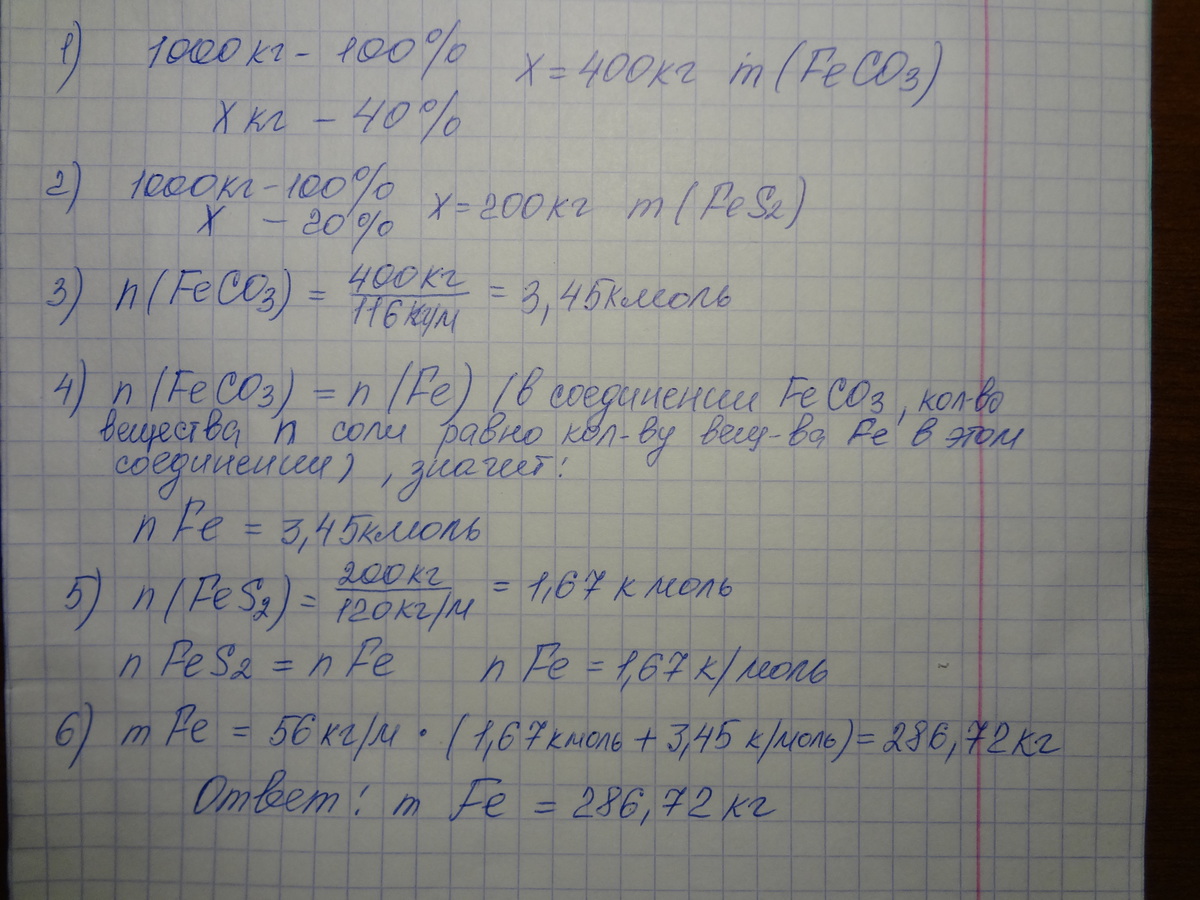 1) 1000кг - 100% x = 400кг m(FeCO3)
Xкг - 40%
2) 1000кг - 100% x = 200кг m(FeS2)
X - 20%
3) n(FeCO3) = 400кг/116кг/м = 3,45кмоль
4) n(FeCO3) = n(Fe) (в соединении FeCO3, кол-во
вещества n соли равно кол-ву вещ-ва Fe в этом
соединении), значит:
n Fe = 3,45кмоль
5) n(FeS2) = 200кг/120кг/м = 1,67 кмоль
n FeS2 = n Fe n Fe = 1,67 к/моль
6) m Fe = 56 кг/м • (1,67кмоль + 3,45 к/моль) = 286,72кг
Ответ: m Fe = 286,72 кг